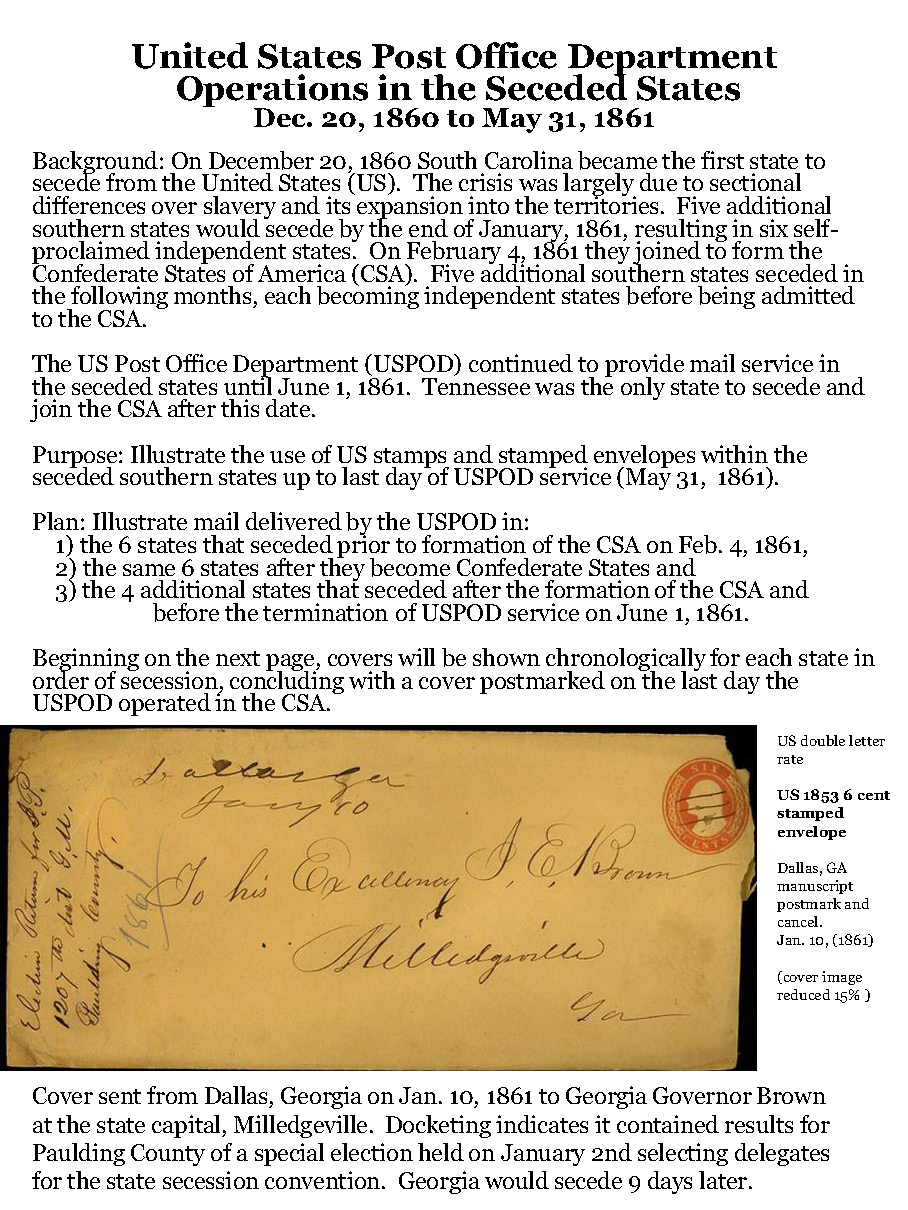 United States Post Office Department
Operations in the Seceded States
Dec. 20, 1860 to May 31, 1861
Background: On December 20, 1860 South Carolina became the first state to
secede from the United States (US).  The crisis was largely due to sectional
differences over slavery and its expansion into the territories.  Five additional
southern states would secede by the end of January, 1861, resulting in six self-
proclaimed independent states.  On February 4, 1861 they joined to form the
Confederate States of America (CSA).  Five additional southern states seceded in
the following months, each becoming independent states before being admitted
to the CSA.
The US Post Office Department (USPOD) continued to provide mail service in
the seceded states until June 1, 1861.  Tennessee was the only state to secede and
join the CSA after this date.
Purpose: Illustrate the use of US stamps and stamped envelopes within the
seceded southern states up to last day of USPOD service (May 31,  1861).
Plan: Illustrate mail delivered by the USPOD in:
1) the 6 states that seceded prior to formation of the CSA on Feb. 4, 1861,
2) the same 6 states after they become Confederate States and
3) the 4 additional states that seceded after the formation of the CSA and
before the termination of USPOD service on June 1, 1861.
Beginning on the next page, covers will be shown chronologically for each state in
order of secession, concluding with a cover postmarked on the last day the
USPOD operated in the CSA.
Dallas Ga
Jany 10
SIX
CENTS
To his Excellency J. E. Brown
Milledgville
Ga
Election Return for J.P.
1207 th dist G.M.
Paulding County.
1861
US double letter
rate
US 1853 6 cent
stamped
envelope
Dallas, GA
manuscript
postmark and
cancel.
Jan. 10, (1861)
(cover image
reduced 15% )
Cover sent from Dallas, Georgia on Jan. 10, 1861 to Georgia Governor Brown
at the state capital, Milledgeville.  Docketing indicates it contained results for
Paulding County of a special election held on January 2nd selecting delegates
for the state secession convention.  Georgia would secede 9 days later.